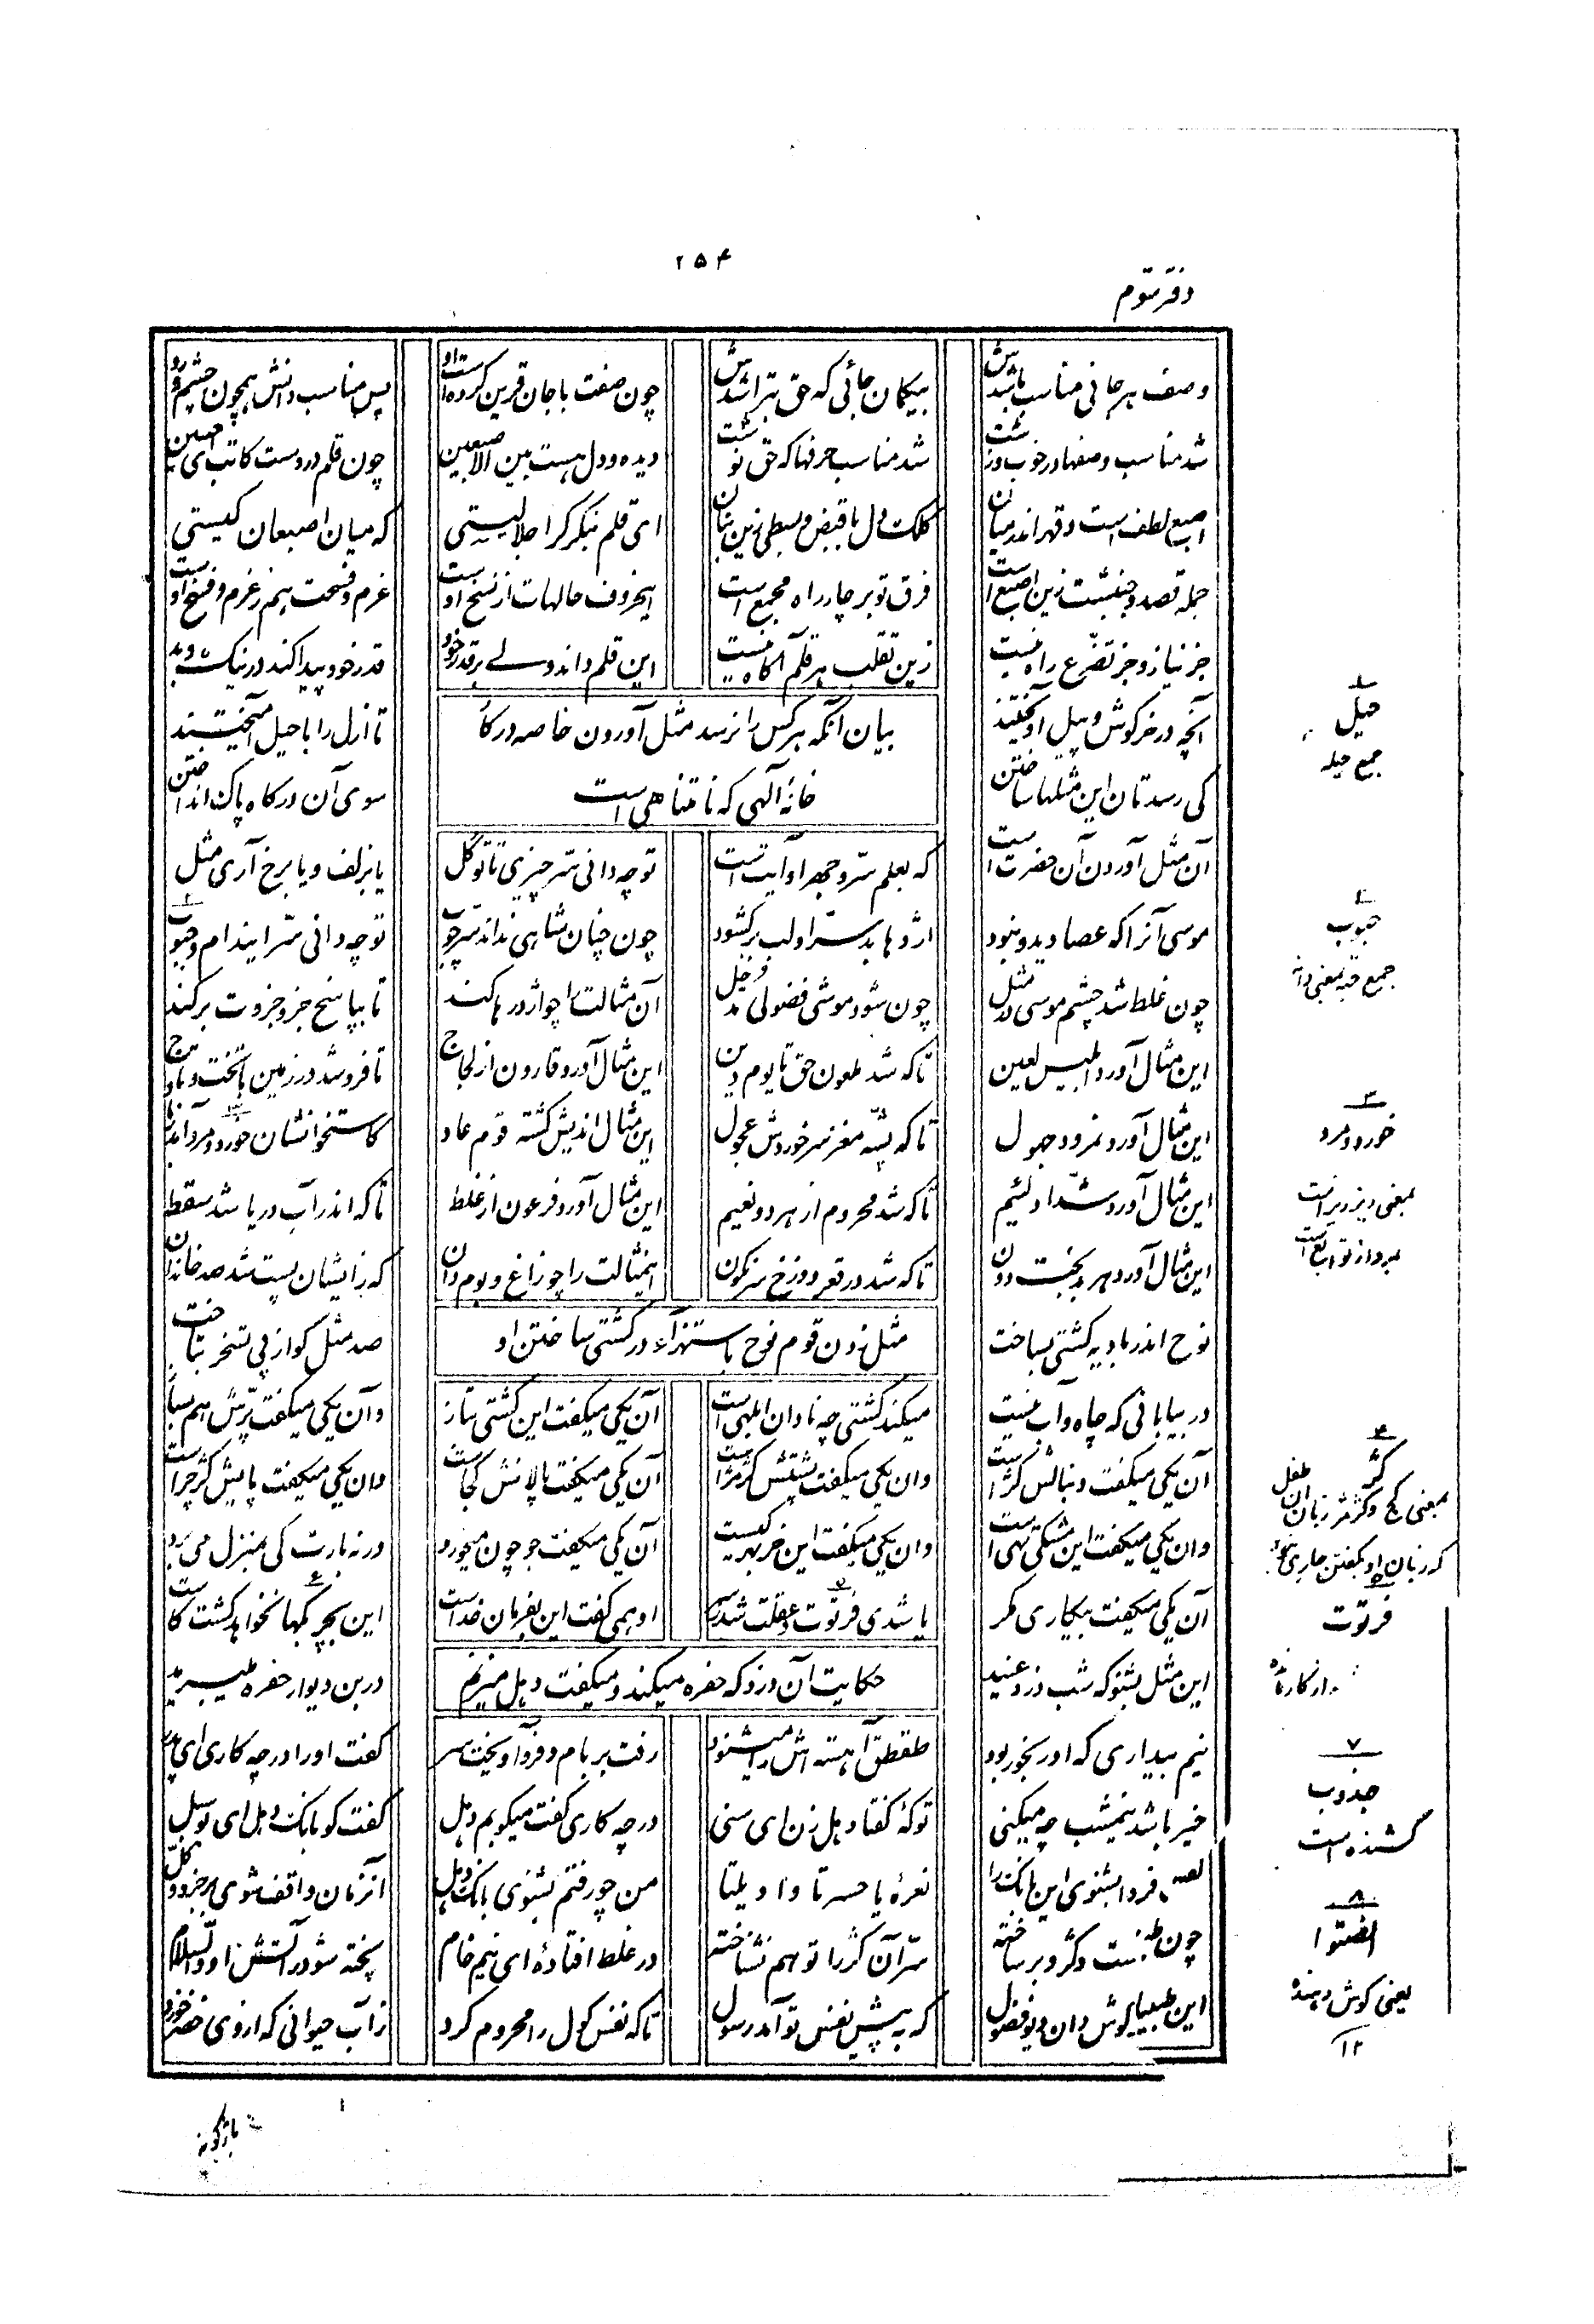 ۲۵۴
دفتر سوم
وصف هر جانی مناسب باشدش بیگمان جائی که حق بتراشدش چون صفت با جان قرین کرده است او پس مناسب دانش همچون چشم و رو
شد مناسب وصفها در خوب و زشت شد مناسب حرفها که حق نوشت دیده و دل هست بین الاصبعین چون قلم در دست کاتب ای حسین
اصبع لطف است و قهر اندر میان کلک دل با قبض و بسطی زین بنان ای قلم بنگر گر اجلالیستی که میان اصبعان کیستی
جمله قصد و جنبشت زین اصبع است فرق تو بر چار راه مجمع است اینحروف حالهات از نسخ اوست عزم و فسخت هم ز عزم و فسخ اوست
جز نیاز و جز تضرّع راه نیست زین تقلب هر قلم آگاه نیست این قلم داند ولی بر قدر خود قدر خود پیدا کند در نیک و بد
بیان آنکه هر کس را نرسد مثل آوردن خاصه در کار
خانهٔ الهی که نامتناهی است
آنچه در خرگوش و پیل آویختند تا ازل را با حیل آمیختند
کی رسدتان این مثلها ساختن سوی آن درگاه پاک انداختن
آن مثل آوردن آن حضرت است که بعلم سرّ و جهر او آیتست تو چه دانی سرّ چیزی تا تو کل یا بزلف و یا برخ آری مثل
موسی آنرا که عصا دید و نبود اژدها بد سرّ او لب برگشود چون چنان شاهی نداند سرّ چوب تو چه دانی سرّ ایندام و حبوب
چون غلط شد چشم موسی در مثل چون شود موشی فضولی مدّخل آن مثالت را چو اژدرها کند تا بپاسخ جزو جزوت برکند
این مثال آورد ابلیس لعین تا که شد ملعون حق تا یوم دین این مثال آورد قارون از لجاج تا فرو شد در زمین با تخت و تاج
این مثال آورد نمرود جهول تا که پشّه مغز سر خوردش عجول این مثال اندیش گشته قوم عاد کاستخوانشان خورد و مرد آندند باد
این مثال آورد شدّاد لئیم تا که شد محروم از هر دو نعیم این مثال آورد فرعون از غلط تا که اندر آب دریا شد سقط
این مثال آورد هر بدبخت دون تا که شد در قعر دوزخ سرنگون اینمثالت را چو زاغ و بوم دان که زایشان پست شد صد خاندان
مثل زدن قوم نوح باستهزاء در کشتی ساختن او
نوح اندر بادیه کشتی بساخت صد مثل گو از پی تسخر بتاخت
در بیابانی که چاه و آب نیست میکند کشتی چه نادان ابلهی است آن یکی میگفت این کشتی بتاز وآن یکی میگفت پرّش هم بساز
آن یکی میگفت دنبالش کژ است وان یکی میگفت پشتش کژمژ است آن یکی میگفت پالانش کجاست وان یکی میگفت پایش کژ چراست
وان یکی میگفت این مشکی تهی است وان یکی میگفت این خر بهر کیست آن یکی میگفت جو چون میخورد ورنه بارت کی بمنزل می‌برد
آن یکی میگفت بیکاری مگر یا شدی فرتوت و عقلت شد ز سر او همی گفت این بفرمان خداست این بچربکها نخواهد گشت کاست
حکایت آن دزد که حفره میکند و میگفت دهل میزنم
این مثل بشنو که شب دزد عنید در بن دیوار حفره میبرید
نیم بیداری که او رنجور بود طقطق آهسته‌اش را میشنود رفت بر بام و فرو آویخت سر گفت او را در چه کاری ای پدر
خیر باشد نیمشب چه میکنی تو که گفتا دهل زن ای سنی در چه کاری گفت میکوبم دهل گفت کو بانک دهل ای بوسبل
فردا بشنوی این بانک را نعرهٔ یا حسرتا وا ویلتا من چو رفتم بشنوی بانک دهل آنزمان واقف شوی بر جزو و کلّ
چون دگر و برساخته سرّ آن کژ را تو هم نشناخته در غلط افتادهٔ ای نیم خام پخته شو در آتش او والسلام
این دان دیو فضول که به پیش نفس تو آمد رسول تا که نفس گول را محروم کرد زآب حیوانی که از وی خضر خورد
۱
حیل
جمع حیله
۲
حبوب
جمع حبّه بمعنی دانه
۳
خورد و مرد
بمعنی ریز ریز است
مرد از توابع است
۴
کژ
بمعنی کج و کژمژ زبان آن طفل
که زبان او بگفتن جاری نبود
۵
فرتوت
از کار مانده
۷
جذوب
کشنده است
۸
انصتوا
یعنی گوش دهنده
۱۲
بازگونه